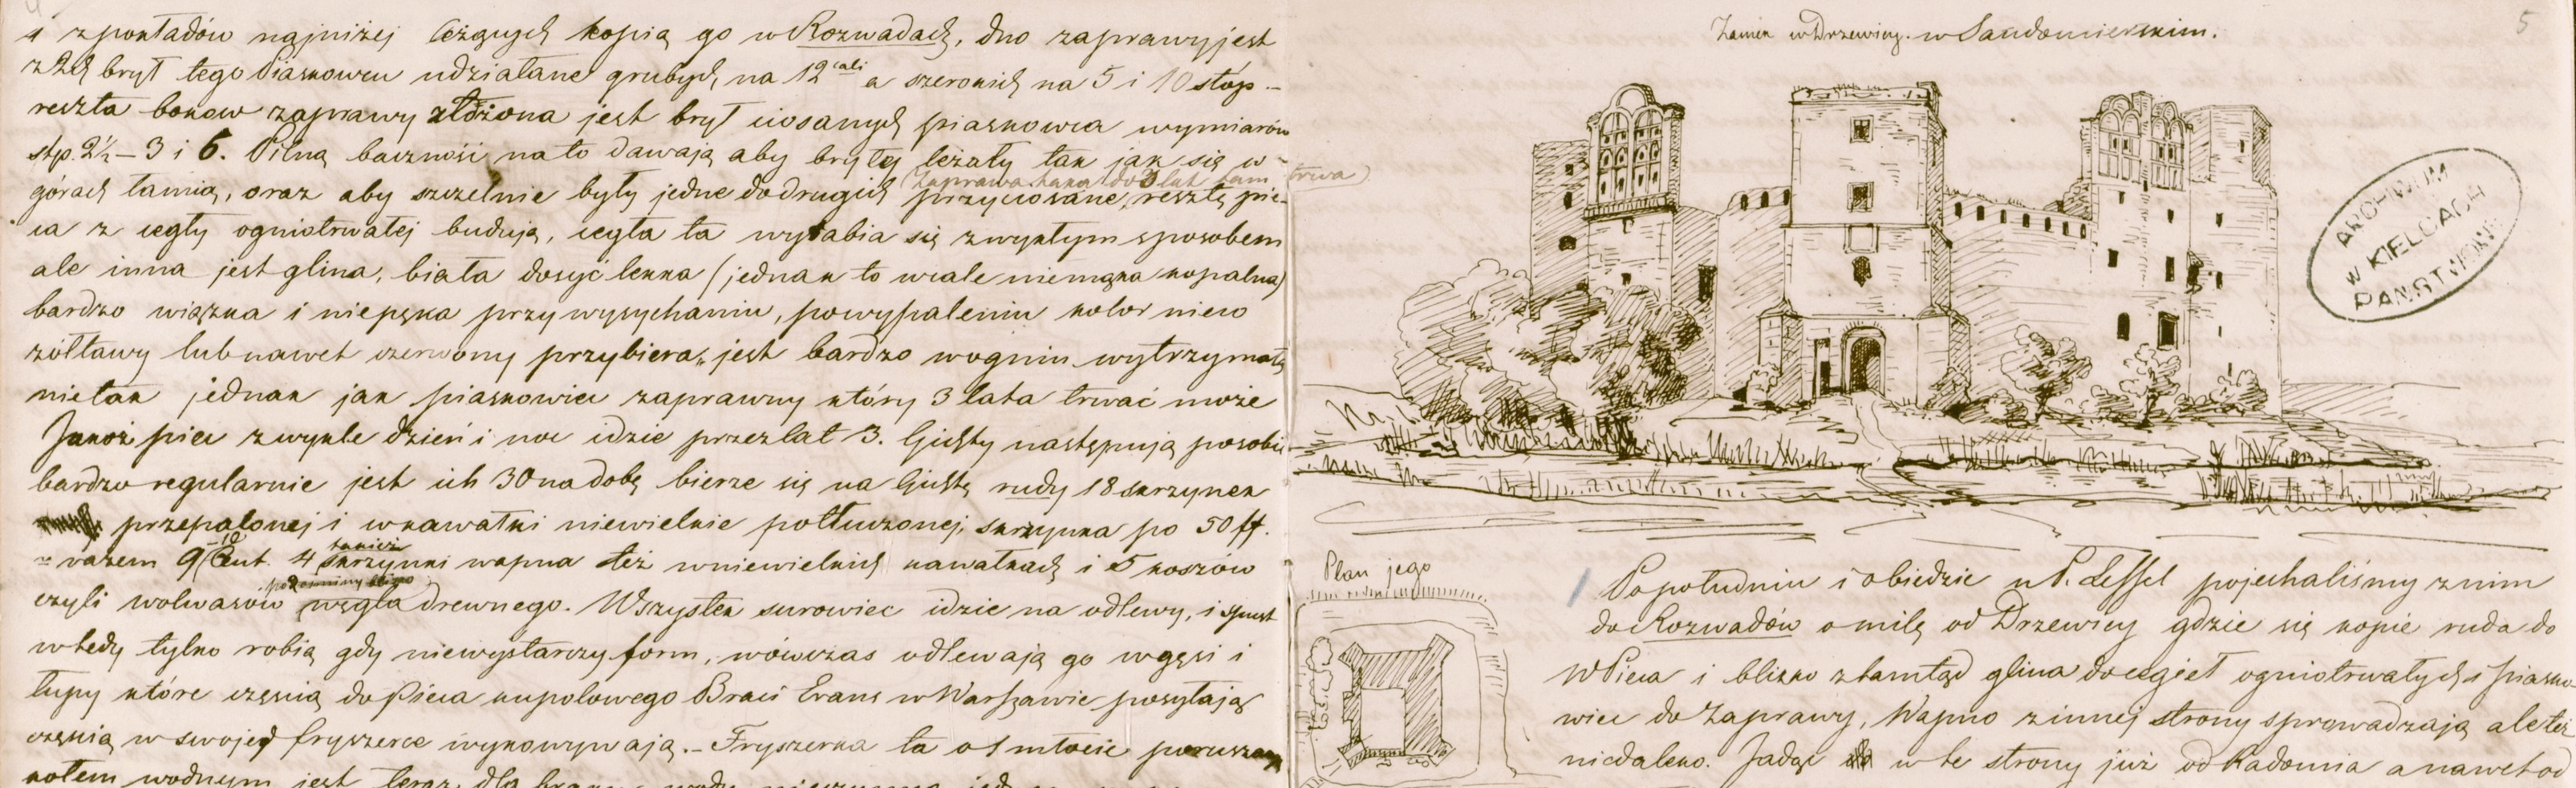 i z pokładów najniżej leżących kopią go w Rozwadach, dno zaprawy jest
z tych brył tego Piaskowcu udziałane grubych na 12 cali a szerokich na 5 i 10 stóp –
reszta boków zaprawy złożona jest brył ciosanych piaskowca wymiarów
stp. 2½ – 3 i 6. Pilną baczność na to dawają aby bryły leżały tak jak się w
górach łamią, oraz aby szczelnie były jedne do drugich przyciosane, resztę pie-
(Zaprawa taka do 3 lat tam trwa)
ca z cegły ogniotrwałej budują, cegła ta wyrabia się zwykłym sposobem
ale inna jest glina, biała dosyć lekka (jednak to wcale nie mąka kopalna)
bardzo wiązka i nie pęka przy wysychaniu, po wypaleniu kolor nieco
żółtawy lub nawet czerwony przybiera, jest bardzo w ogniu wytrzymałą
nie tak jednak jak piaskowiec zaprawny który 3 lata trwać może
Jakoż piec zwykle dzień i noc idzie przez lat 3. Gichty następują po sobie
bardzo regularnie jest ich 30 na dobę bierze się na Gichtę rudy 18 skrzynek
przepalonej i w kawałki niewielkie potłuczonej, skrzynka po 50 ff.
– razem 9 Cent. 4 takież skrzynki wapna też w niewielkich kawałkach i 5 koszów
czyli wolwasów węgla drewnego. Wszystek surowiec idzie na odlewy, i spust
wtedy tylko robią gdy nie wystarczy form, wówczas odlewają go w gęsi i
łupy które częścią do pieca kupolowego Braci Evans w Warszawie posyłają
częścią w swojej fryszerce wykowywają. – Fryszerka ta o 1 młocie poruszanym
kołem wodnym jest teraz dla braku wody
Zamek w Drzewicy w Sandomierskim.
5
ARCHIWUM
W KIELCACH
PAŃSTWOWE
Plan jego
Po południu i obiedzie u P. Lessel pojechaliśmy z nim
do Rozwadów o milę od Drzewicy gdzie się kopie ruda do
W Pieca i blisko ztamtąd glina do cegieł ogniotrwałych i piasko-
wiec do Zaprawy, Wapno z innej strony sprowadzają ale też
niedaleko. Jadąc w te strony już od Radomia a nawet od